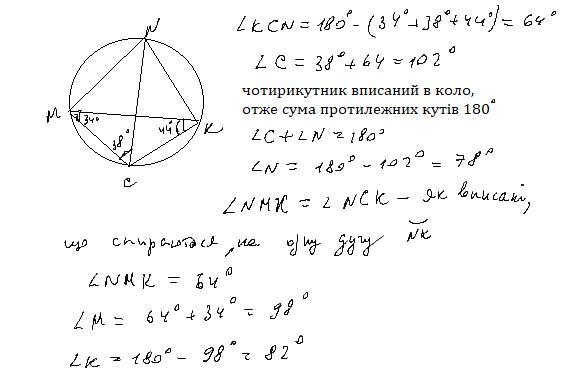 ∠KCN = 180° - (34° + 38° + 44°) = 64°
∠C = 38° + 64 = 102°
чотирикутник вписаний в коло,
отже сума протилежних кутів 180°
∠C + ∠N = 180°
∠N = 180° - 102° = 78°
∠NMK = ∠NCK - як вписані,
що спираються на одну дугу NK
∠NMK = 64°
∠M = 64° + 34° = 98°
∠K = 180° - 98° = 82°
N
M
34°
44°
K
38°
C